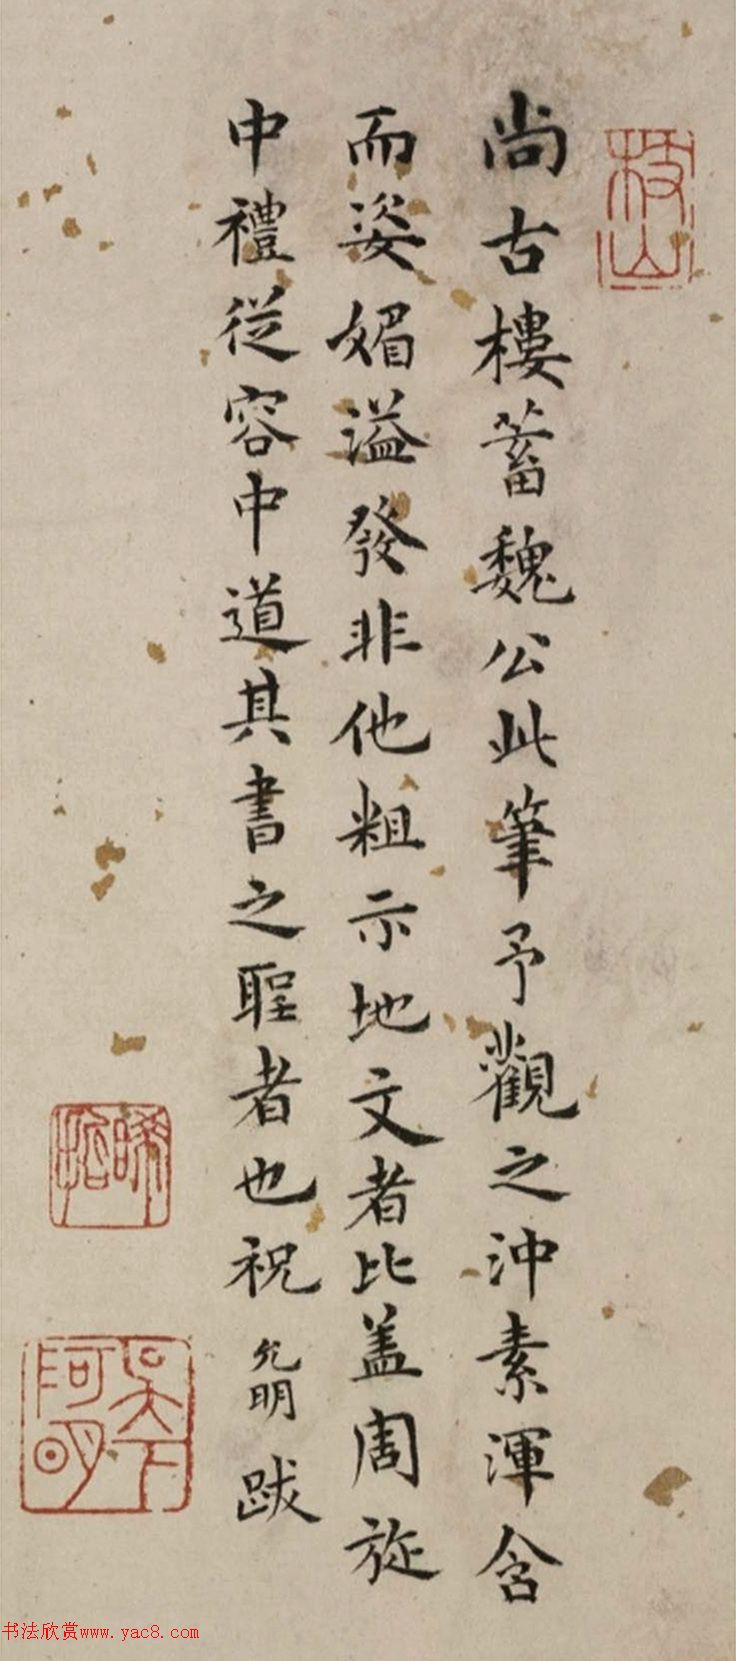 枝山
尚古樓蓄魏公此筆予觀之沖素渾含
而姿媚溢發非他粗示地文者比盖周旋
中禮從容中道其書之聖者也祝允明跋
晞哲
吳下阿明
书法欣赏www.yac8.com